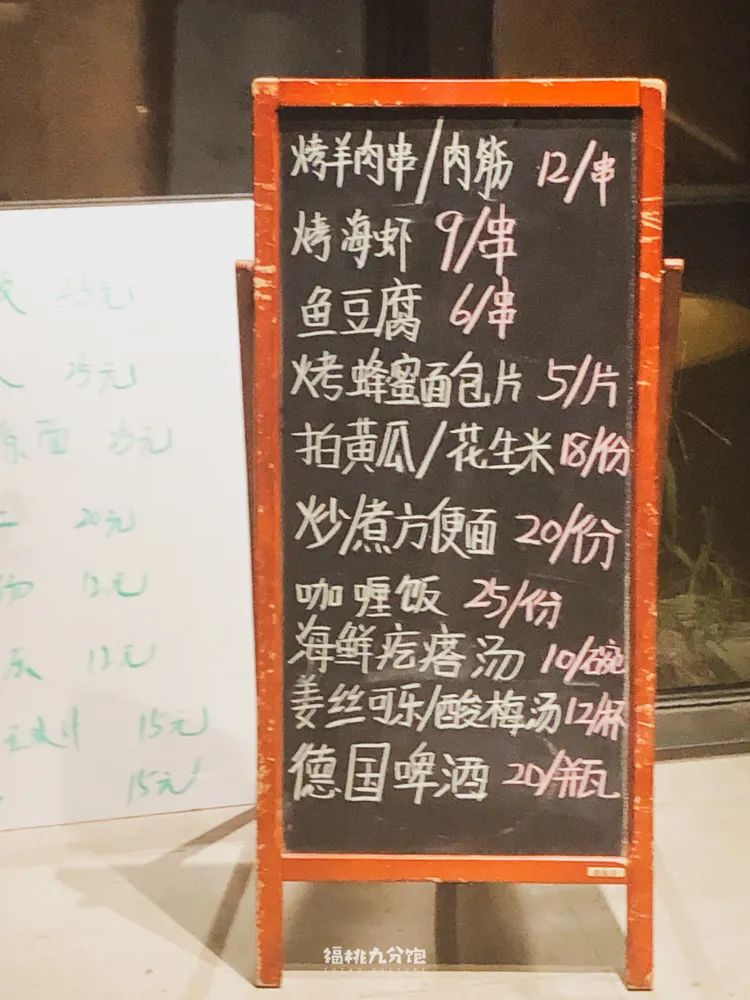 烤羊肉串/肉筋 12/串
烤海虾 9/串
鱼豆腐 6/串
烤蜂蜜面包片 5/片
拍黄瓜/花生米 18/份
炒/煮方便面 20/份
咖喱饭 25/份
海鲜疙瘩汤 10/碗
姜丝可乐/酸梅汤 12/杯
德国啤酒 20/瓶
25元
25元
凉面 25元
20元
汤 12元
乐 12元
15元
15元
福桃九分饱
FUTAO CULTURE